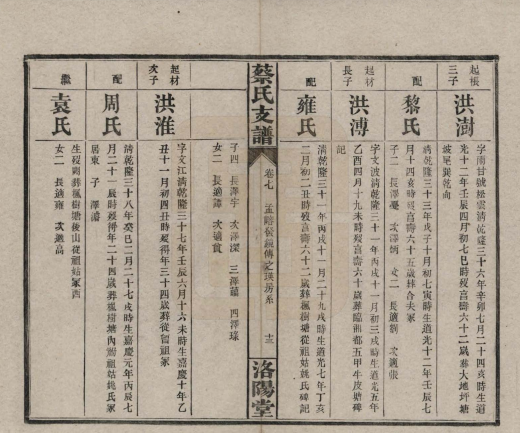 起根
三子
洪澍
字雨甘號松雲清乾隆三十六年辛卯七月二十四亥時生道
光十二年壬辰四月初七巳時歿享壽六十二歲葬大地坪塘
坡尾巽乾向
配
黎氏
清乾隆三十三年戊子十月初七寅時生道光十二年壬辰七
月十四亥時歿享壽六十五歲葬合夫冢
子二 長澤憂 次澤炳 女二 長適劉 次適張
起材
長子
洪溥
字文波清乾隆三十一年丙戌十一月初三戌時生道光五年
乙酉四月十九未時歿享壽六十歲葬臨湘都五甲牛皮塘碑
記
配
雍氏
清乾隆三十一年丙戌十一月二十九戌時生道光七年丁亥
二月初二丑時歿享壽六十二歲葬楓樹塘從祖姑姚氏碑記
子四 長澤宇 次澤深 三澤藹 四澤球
女二 長適譚 次適黃
蔡氏支譜
卷七
房系
十三
洛陽堂
起材
次子
洪淮
字文江清乾隆三十七年壬辰六月十六未時生嘉慶十年乙
丑十一月初四丑時歿得年三十四歲葬從伯祖冢
配
周氏
清乾隆三十八年癸巳二月二十九戌時生嘉慶元年丙辰七
月二十二辰時歿得年二十四歲葬楓樹塘內湍祖姑姚氏冢
居東 子 澤濤
繼
袁氏
生歿則葬楓樹塘後山從祖姑冢西
女二 長適雍 次適高